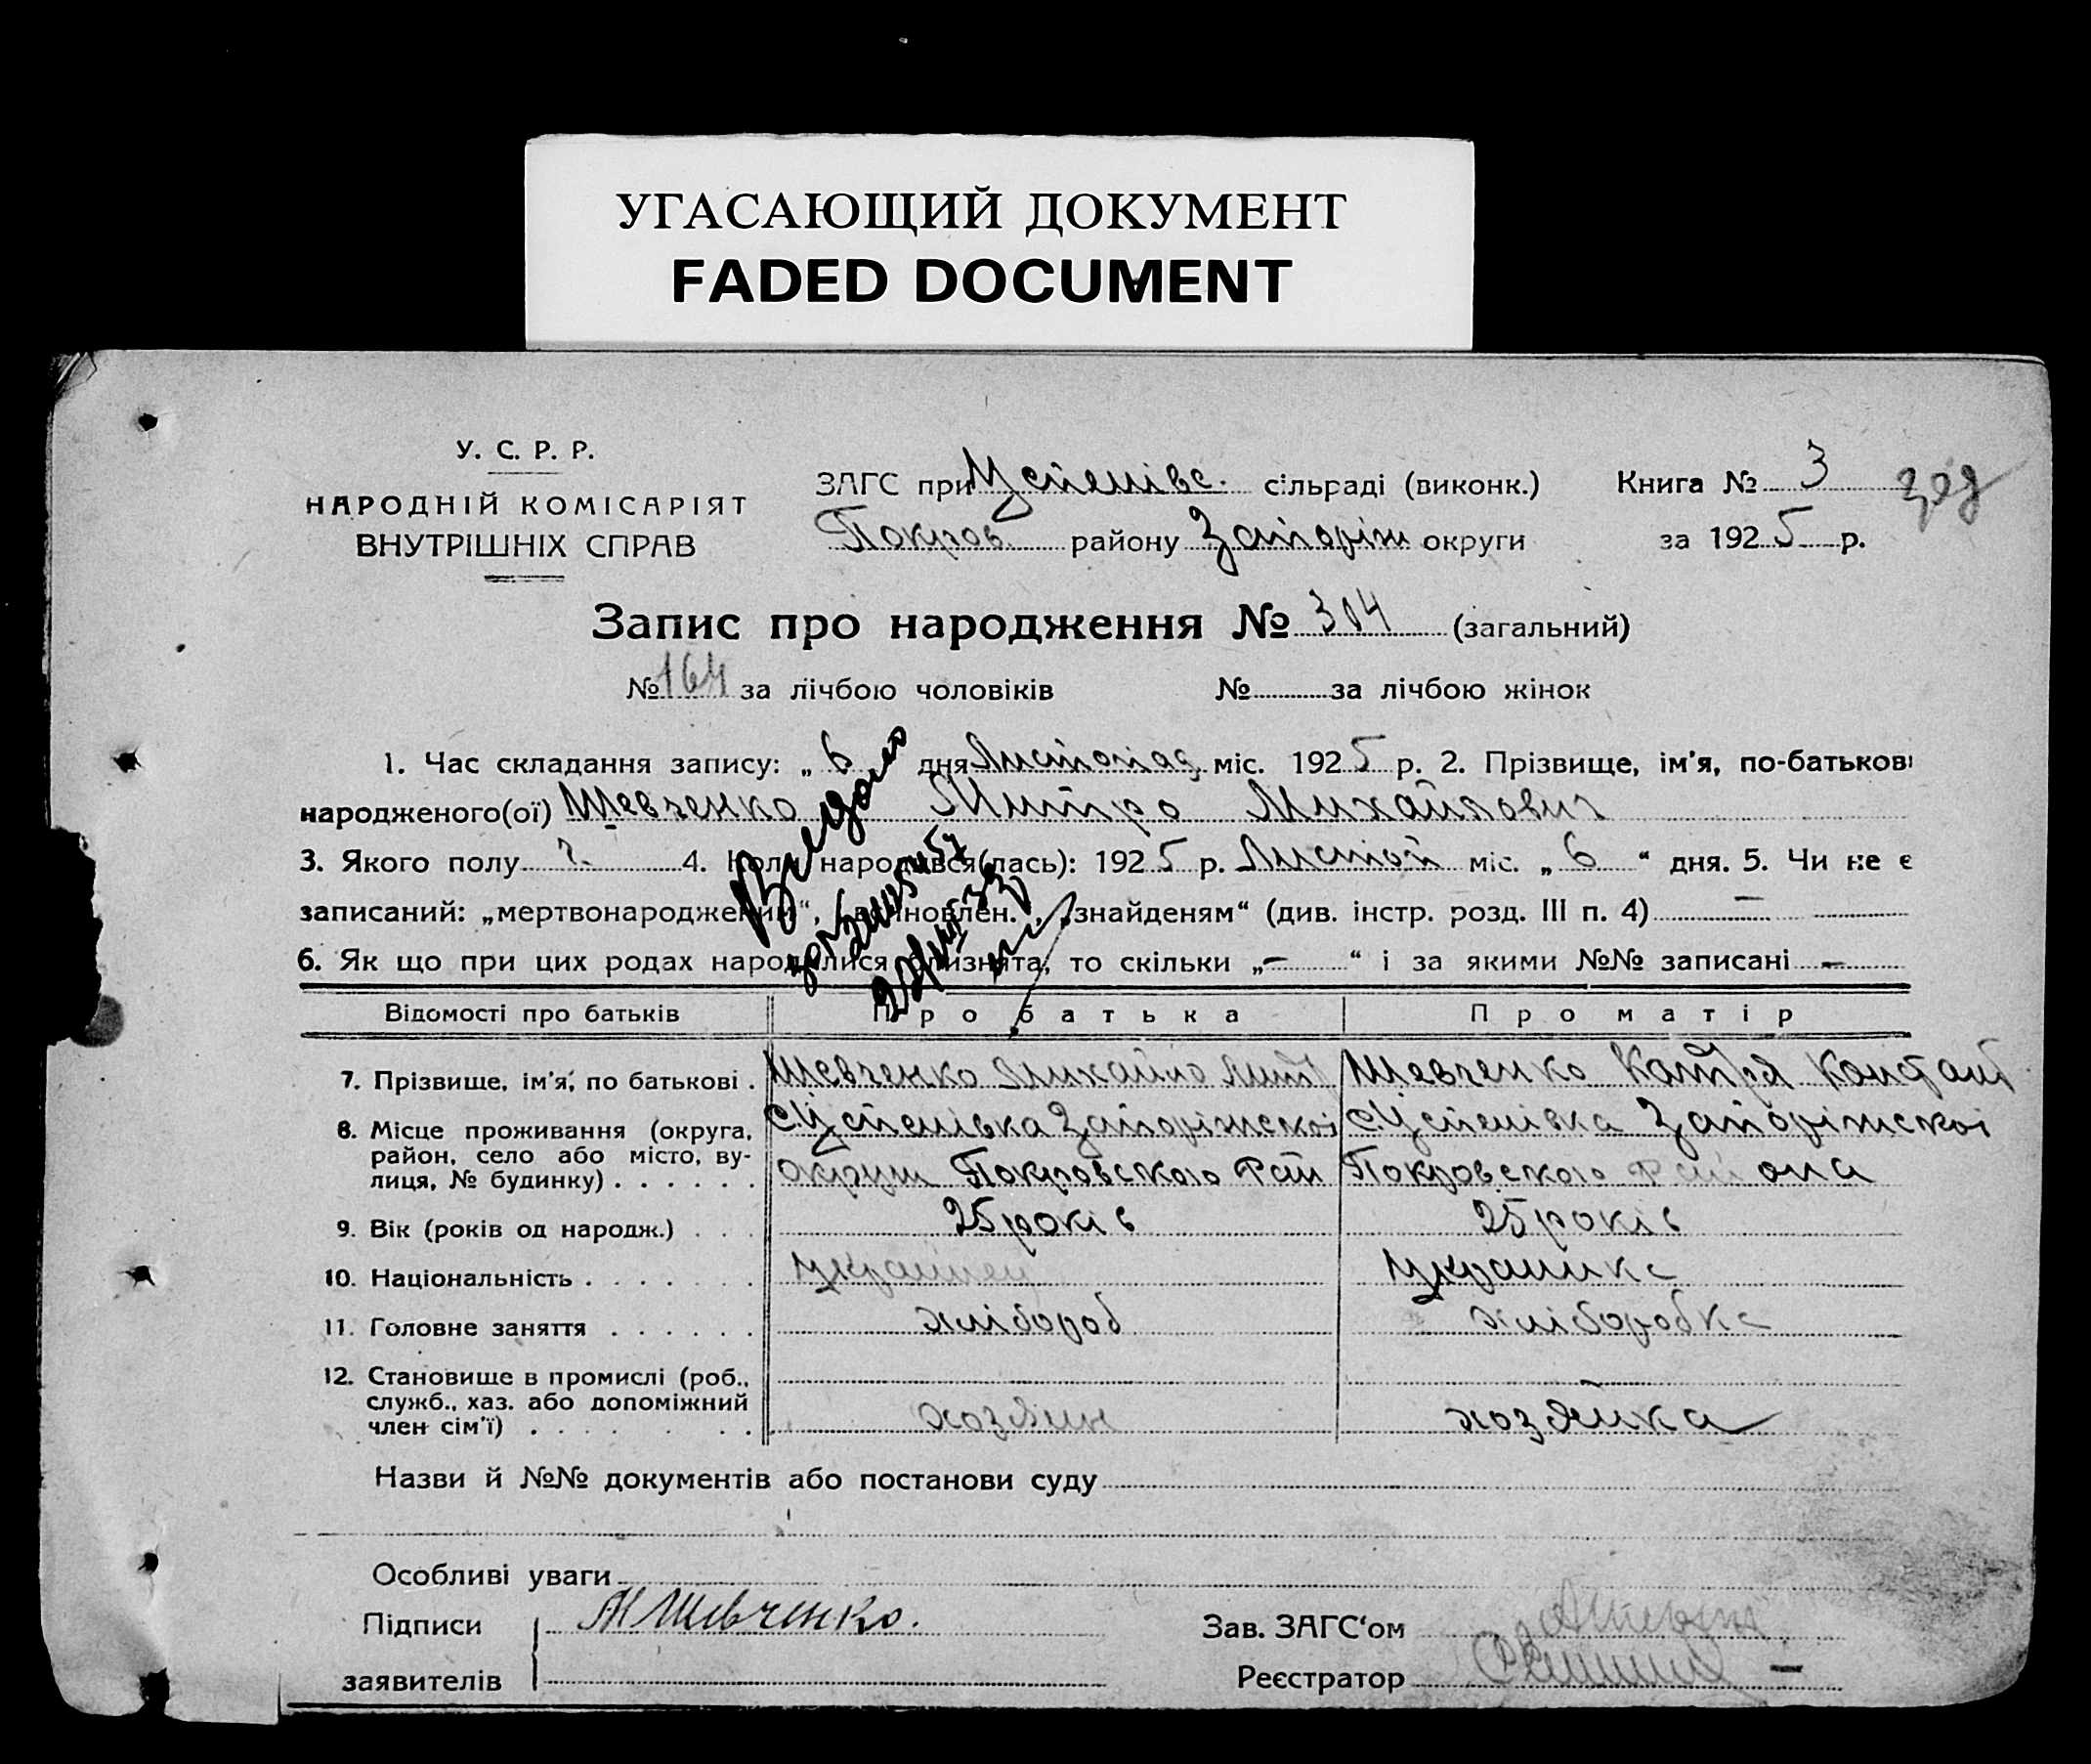 УГАСАЮЩИЙ ДОКУМЕНТ
FADED DOCUMENT
У. С. Р. Р.
НАРОДНІЙ КОМІСАРІЯТ
ВНУТРІШНІХ СПРАВ
ЗАГС при Успенівс. сільраді (виконк.)
Покров району Запоріж округи
Книга № 3
за 1925 р.
Запис про народження № 304 (загальний)
№ 164 за лічбою чоловіків № за лічбою жінок
1. Час складання запису: „ 6 дня Листопад міс. 1925 р. 2. Прізвище, ім'я, по-батькові
народженого(ої) Шевченко Митро Михайлович
3. Якого полу ч. 4. Коли народився(лась): 1925 р. Листоп міс. „ 6 “ дня. 5. Чи не є
записаний: „мертвонароджений“, знайденям“ (див. інстр. розд. III п. 4) —
6. Як що при цих родах народилися близнята, то скільки „ — “ і за якими №№ записані —
Відомості про батьків Про батька Про матір
7. Прізвище, ім'я, по батькові . Шевченко Михайло Мит Шевченко Катря Констант
8. Місце проживання (округа, с. Успенівка Запоріжскоі с. Успенівка Запоріжскоі
район, село або місто, ву-
лиця, № будинку) . . . . . . округи Покровського Рай Покровського Района
9. Вік (років од народж.) . . . 25 років 25 років
10. Національність . . . . . . . українец українка
11. Головне заняття . . . . . . хлібороб хліборобка
12. Становище в промислі (роб.,
служб., хаз. або допоміжний
член сім'ї) . . . . . . . хозяин хозяйка
Назви й №№ документів або постанови суду
Особливі уваги
Підписи М Шевченко.
заявителів
Зав. ЗАГС'ом
Реєстратор